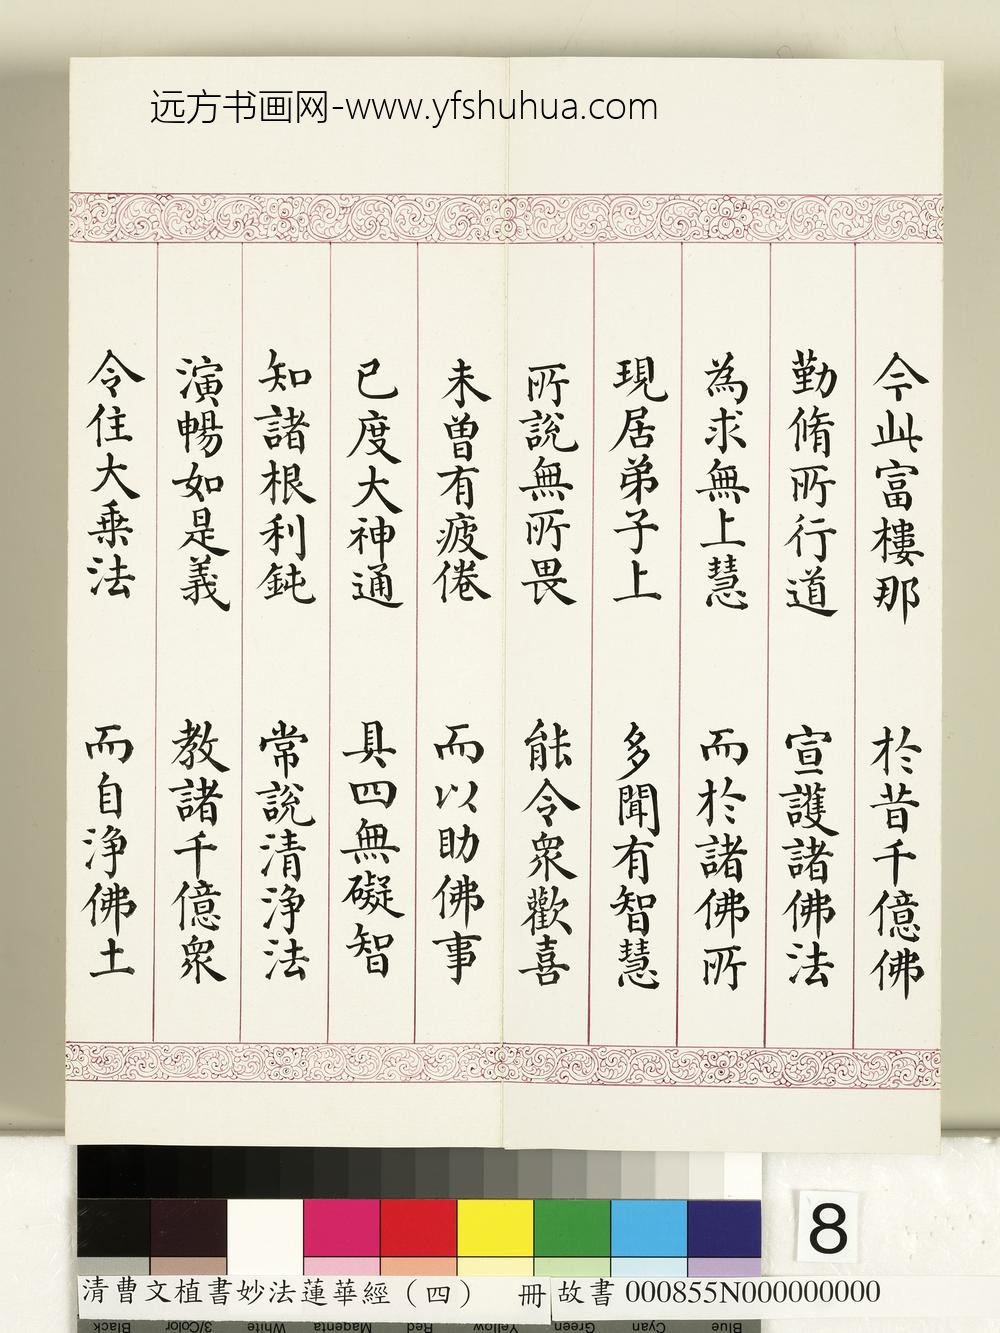 远方书画网-www.yfshuhua.com
今此富樓那 於昔千億佛
勤脩所行道 宣護諸佛法
為求無上慧 而於諸佛所
現居弟子上 多聞有智慧
所說無所畏 能令衆歡喜
未曾有疲倦 而以助佛事
已度大神通 具四無礙智
知諸根利鈍 常說清淨法
演暢如是義 教諸千億衆
令住大乗法 而自淨佛土
8
清曹文植書妙法蓮華經（四） 冊 故書 000855N000000000
Black 3/Color White Magenta Red Yellow Green Cyan Blue